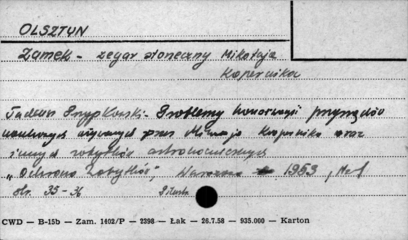 OLSZTYN
Zamek - zegar słoneczny Mikołaja
Kopernika
Tadeusz Przypkowski - Problemy konserwacji przyrządów
naukowych używanych przez Mikołaja Kopernika oraz
innych zabytków astronomicznych
"Ochrona Zabytków", Warszawa 1953,
str. 35-36
CWD — B-15b — Zam. 1402/P — 2398 — Łak — 26.7.58 — 935.000 — Karton